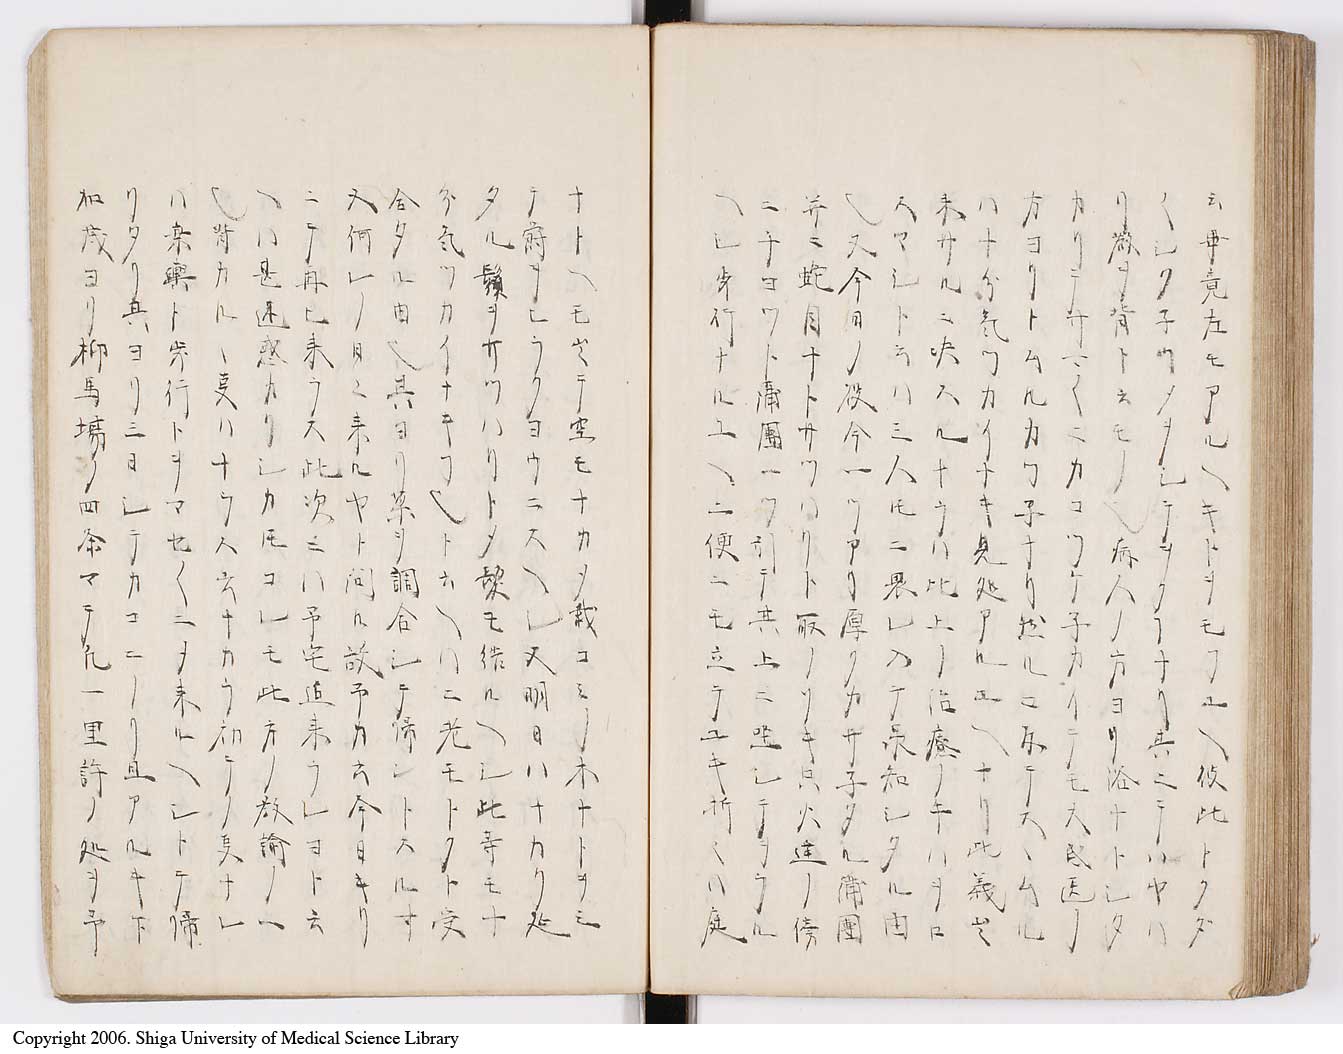 云毋竟左モアルヘキトヲモフ也彼此トクダ
〱シク子ウノメヲシテヲクフナリ其ニテハヤハ
リ激ヲ背ト云モノ也病人ノ方ヨリ浴ナトシタ
カリテサ〱ニカコツケ子カリテモ大成医ノ
方ヨリトムルカワ子ナリ然ルニ反テスヽムル
ハ十分気ツカイナキ見処アルユヘナリ此義並
来サルニ決スルナラハ此上ノ治療ノ
スマシトニ云ハ三人ニ畏レ入テ承知シタル由
也又今日ノ没今一ツアリ厚クカサ子タル蒲團
并ニ蛇目ナトサツハリト取ノソキ只火達ノ傍
ニ子ヨウト蒲團一ツ引テ其上ニ坐シテヲラル
ヘシ歩行ナルユヘ二便ニモ立テユキ折〱ハ庭
ナトヘモ出テ空モナカメ栽コミノ木ナトヲモ
テ蔚ヲヒラクヨウニスヘシ又明日ハナカク延
タル鬚ヲサツハリトメ髪モ結ルヘシ此等モ十
分気ツカイナキフ也ト云ヘハニ老モトクト受
合タル由也其ヨリ薬ヲ調合シテ帰ントスルす
又何レノ日〱来ルヤト問ル故予カ云今日キリ
ニテ再ヒ来ラス此次ニハ予宅迄来ラレヨト云
ヘハ甚迷惑カリシカモコレモ此方ノ教諭ノ一
也背カルヽ叓ハナラス云ナカラ初テノ叓ナレ
ハ乗輿ト歩行トヲマセ〱ニヲ来ルヘシトテ帰
リタリ其ヨリ三日シテカコニノリ且アルキ下
加茂ヨリ柳馬場ノ四条マテ凡一里許ノ処ヲ予
Copyright 2006. Shiga University of Medical Science Library